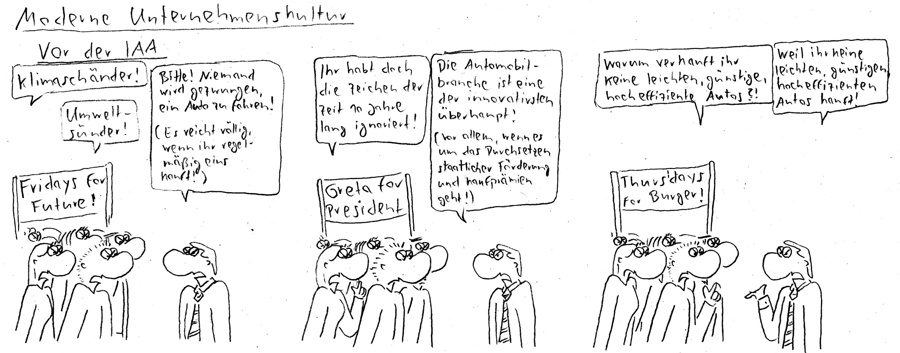 Moderne Unternehmenskultur
Vor der IAA
Klimaschänder!
Umwelt-
sünder!
Bitte! Niemand
wird gezwungen,
ein Auto zu fahren!
(Es reicht völlig,
wenn ihr regel-
mäßig eins
kauft!)
Fridays for
Future!
Ihr habt doch
die Zeichen der
Zeit 10 Jahre
lang ignoriert!
Die Automobil-
branche ist eine
der innovativsten
überhaupt!
(Vor allem, wenn es
um das Durchsetzen
staatlicher Förderung
und Kaufprämien
geht!)
Greta for
President
Warum verkauft ihr
keine leichten, günstigen,
hocheffiziente Autos?!
Weil ihr keine
leichten, günstigen,
hocheffizienten
Autos kauft!
Thursdays
for Burger!